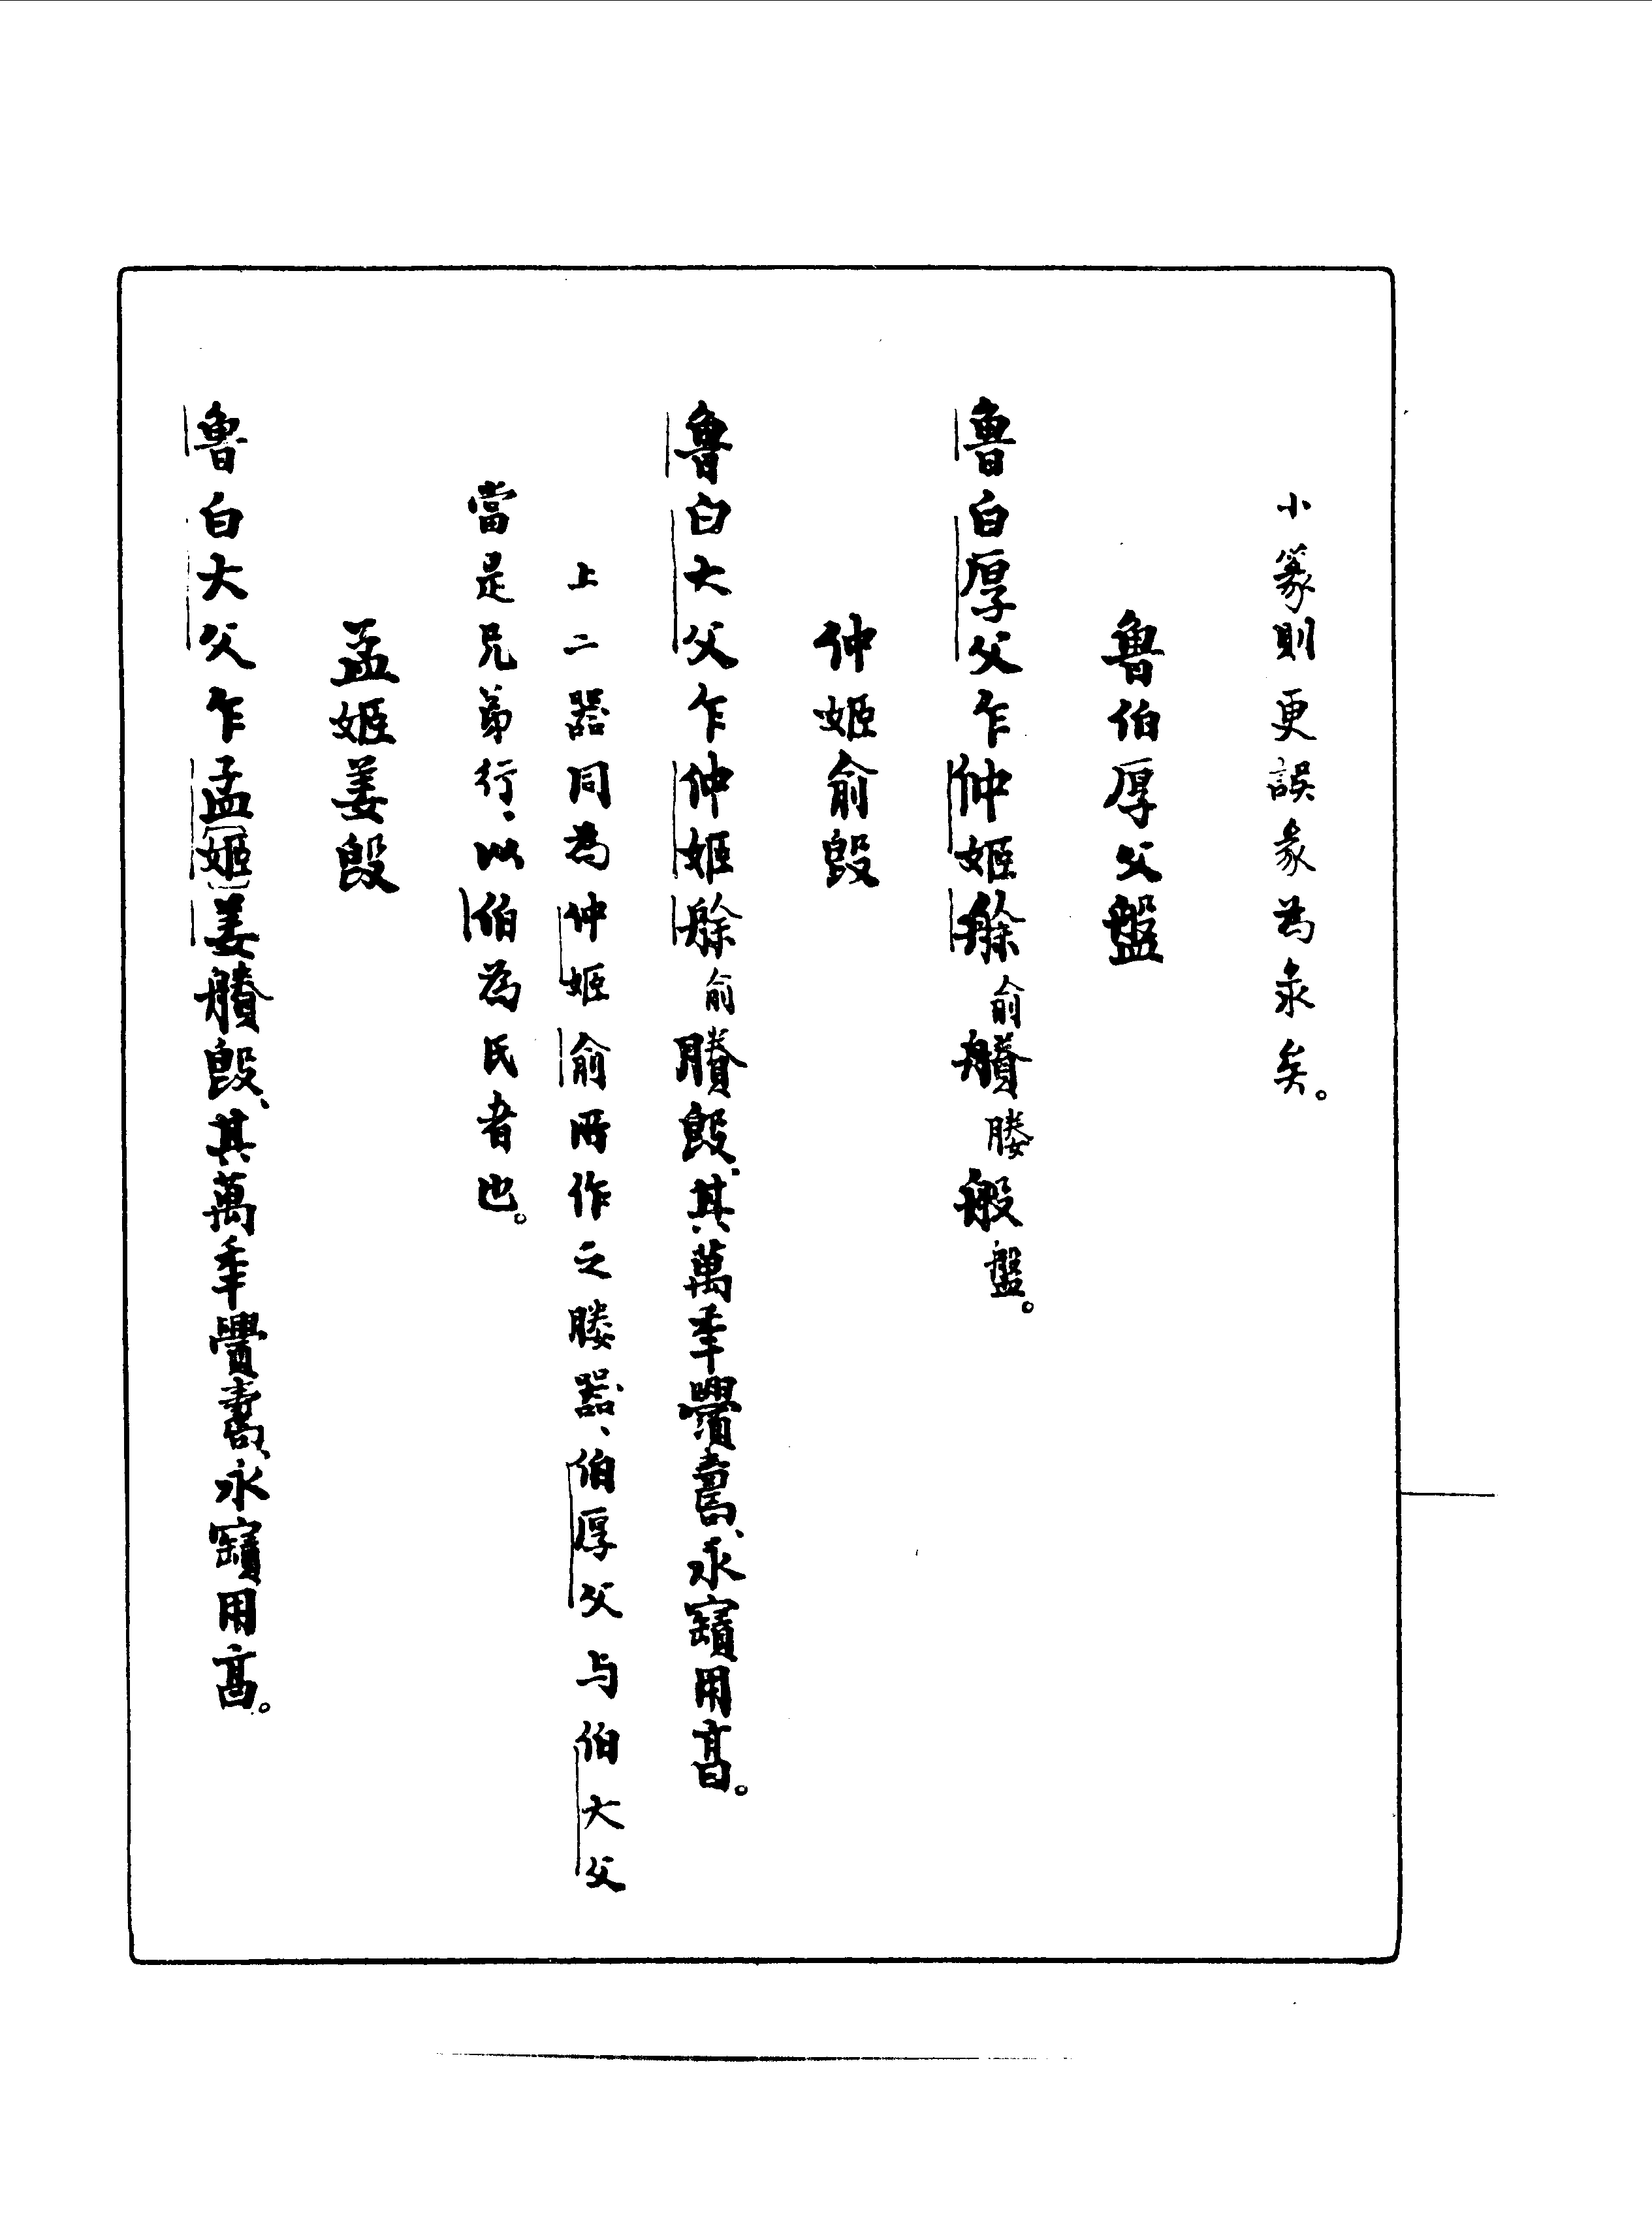 小篆則更誤彖為彔矣。
魯伯厚父盤
魯白厚父乍仲姬艅俞賸媵般盤。
仲姬俞𣪘
魯白大父乍仲姬艅俞賸𣪘、其萬年眉壽、永寶用享。
上二器同為仲姬俞所作之媵器、伯厚父与伯大父
當是兄弟行、以伯為氏者也。
孟姬姜𣪘
魯白大父乍孟[姬]姜賸𣪘、其萬年眉壽、永寶用享。